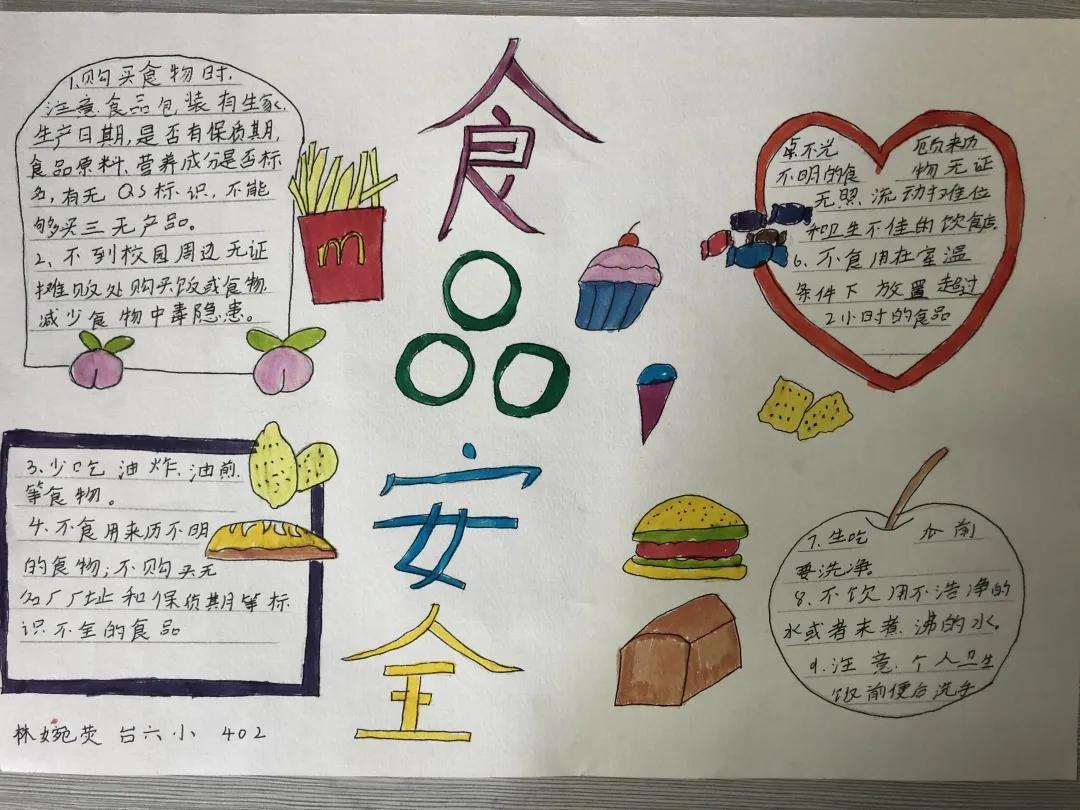 食品安全
1、购买食物时,
注意食品包装有生家,
生产日期,是否有保质期,
食品原料、营养成分是否标
名,有无QS标识,不能
够买三无产品。
2、不到校园周边无证
摊贩处购买饭或食物,
减少食物中毒隐患。
m
3、少吃油炸、油煎,
等食物。
4、不食用来历不明
的食物;不购买无
名厂厂址和保质期等标
识不全的食品
不光顾来历
不明的食物无证
无照流动摊位
和卫生不佳的饮食店
6、不食用在室温
条件下放置超过
2小时的食品
7、生吃 瓜前
要洗净。
8、不饮用不洁净的
水或者未煮沸的水。
9、注意个人卫生
饭前便后洗手
林婉荧 台六小 402